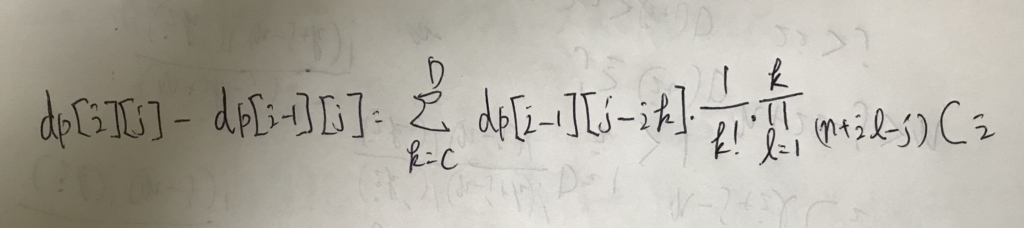 dp[i][j] - dp[i-1][j] = \sum_{k=C}^{D} dp[i-1][j-ik] \cdot \frac{1}{k!} \cdot \prod_{l=1}^{k} {}_{(n+il-j)} C_{i}